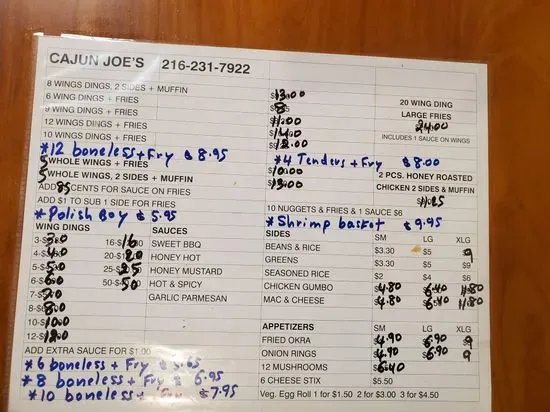 CAJUN JOE'S 216-231-7922
8 WINGS DINGS, 2 SIDES + MUFFIN $13.00
6 WING DINGS + FRIES
9 WING DINGS + FRIES $11.00
12 WINGS DINGS + FRIES
10 WINGS DINGS + FRIES $12.00
*12 boneless + Fry $8.95
5 WHOLE WINGS + FRIES $10.00
5 WHOLE WINGS, 2 SIDES + MUFFIN $13.00
ADD 85 CENTS FOR SAUCE ON FRIES
ADD $1 TO SUB 1 SIDE FOR FRIES
*Polish Boy $5.95
20 WING DING
LARGE FRIES
24.00
INCLUDES 1 SAUCE ON WINGS
*4 Tenders + Fry $8.00
2 PCS. HONEY ROASTED
CHICKEN 2 SIDES & MUFFIN
$11.25
10 NUGGETS & FRIES & 1 SAUCE $6
*Shrimp basket $9.95
WING DINGS SAUCES
16-$16 SWEET BBQ
20-$20 HONEY HOT
25-$25 HONEY MUSTARD
50-$50 HOT & SPICY
GARLIC PARMESAN
ADD EXTRA SAUCE FOR $1.00
*6 boneless + Fry $5.65
*8 boneless + Fry $6.95
*10 boneless + Fry $7.95
SIDES SM LG XLG
BEANS & RICE $3.30 $5 9
GREENS $3.30 $5 $9
SEASONED RICE $2 $4 $6
CHICKEN GUMBO $4.80 $6.40 $11.80
MAC & CHEESE $4.80 $6.40 $11.80
APPETIZERS SM LG XLG
FRIED OKRA $4.90 $6.90 9
ONION RINGS $4.90 $6.90 9
12 MUSHROOMS $6.40
6 CHEESE STIX $5.50
Veg. Egg Roll 1 for $1.50 2 for $3.00 3 for $4.50